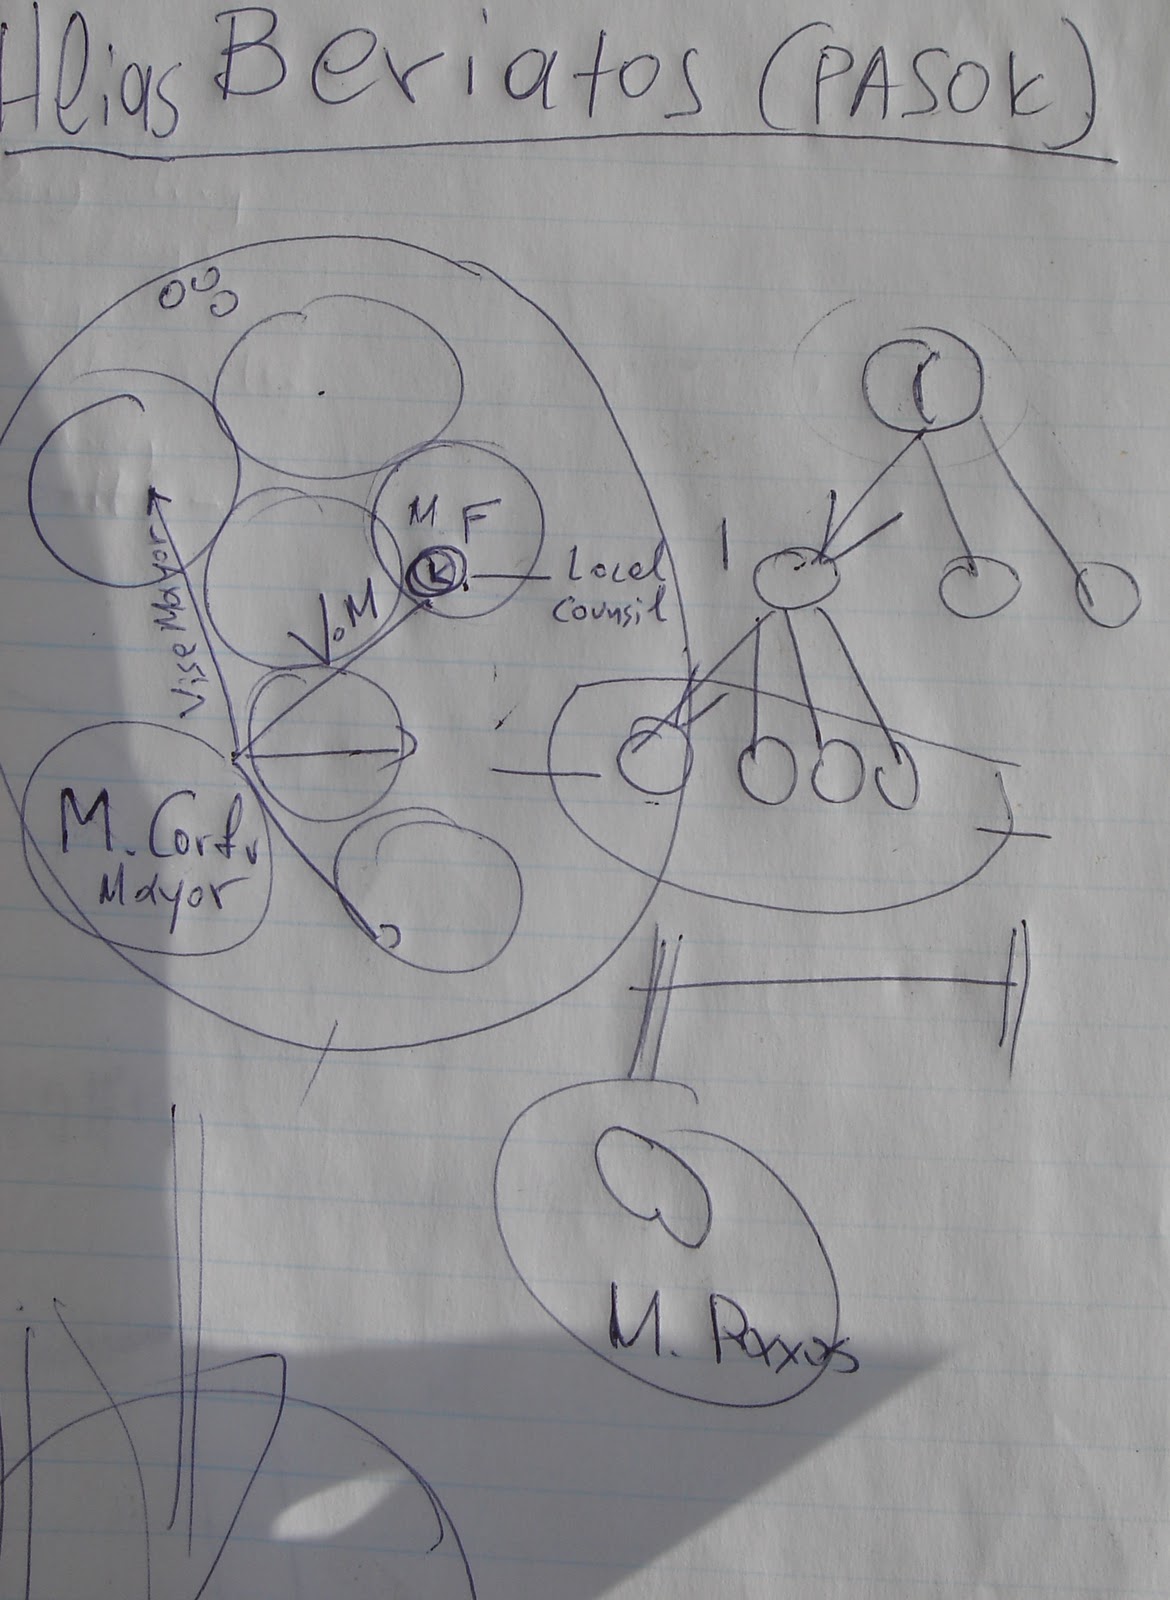 Hlias Beriatos (PASOK)
M F
K
Local
Counsil
V.M
Vise Mayor
M. Corfu
Mayor
M. Paxxos